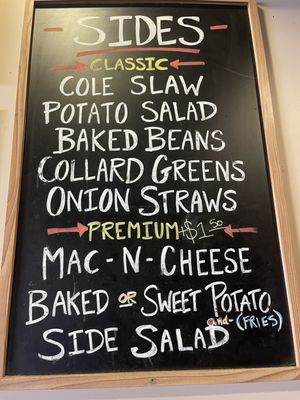 - SIDES -
→ CLASSIC ←
COLE SLAW
POTATO SALAD
BAKED BEANS
COLLARD GREENS
ONION STRAWS
→ PREMIUM +$1.50 ←
MAC-N-CHEESE
BAKED OR SWEET POTATO
and - (FRIES)
SIDE SALAD